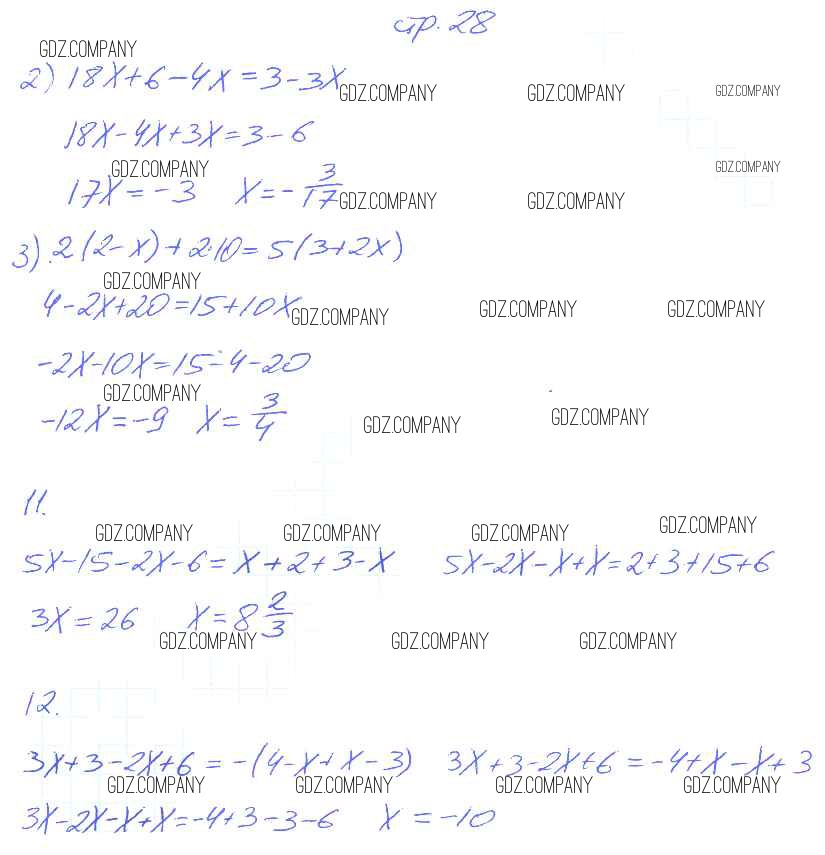 стр. 28
GDZ.COMPANY
2) 18x+6-4x=3-3x
GDZ.COMPANY GDZ.COMPANY GDZ.COMPANY
18x-4x+3x=3-6
GDZ.COMPANY GDZ.COMPANY
17x=-3 x=-3/17
GDZ.COMPANY GDZ.COMPANY
3) 2(2-x)+2·10=5(3+2x)
GDZ.COMPANY
4-2x+20=15+10x
GDZ.COMPANY GDZ.COMPANY GDZ.COMPANY
-2x-10x=15-4-20
GDZ.COMPANY
-12x=-9 x=3/4
GDZ.COMPANY GDZ.COMPANY
11.
GDZ.COMPANY GDZ.COMPANY GDZ.COMPANY GDZ.COMPANY
5x-15-2x-6=x+2+3-x 5x-2x-x+x=2+3+15+6
3x=26 x=8 2/3
GDZ.COMPANY GDZ.COMPANY GDZ.COMPANY
12.
3x+3-2x+6=-(4-x+x-3) 3x+3-2x+6=-4+x-x+3
GDZ.COMPANY GDZ.COMPANY GDZ.COMPANY GDZ.COMPANY
3x-2x-x+x=-4+3-3-6 x=-10